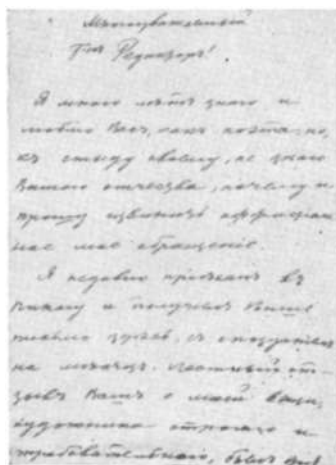 Многоуважаемый
Г-нъ Редакторъ!
Я много лѣтъ знаю и
люблю Васъ, какъ поэта, но,
къ стыду своему, не знаю
Вашего отчества, почему и
прошу извинить
мое обращеніе.
Я недавно пріѣхалъ въ
и получилъ Ваше
письмо здѣсь, съ опозданіемъ
на мѣсяцъ. от-
зывъ Вашъ о моей вещи,
художника строгаго и
требовательнаго, былъ для